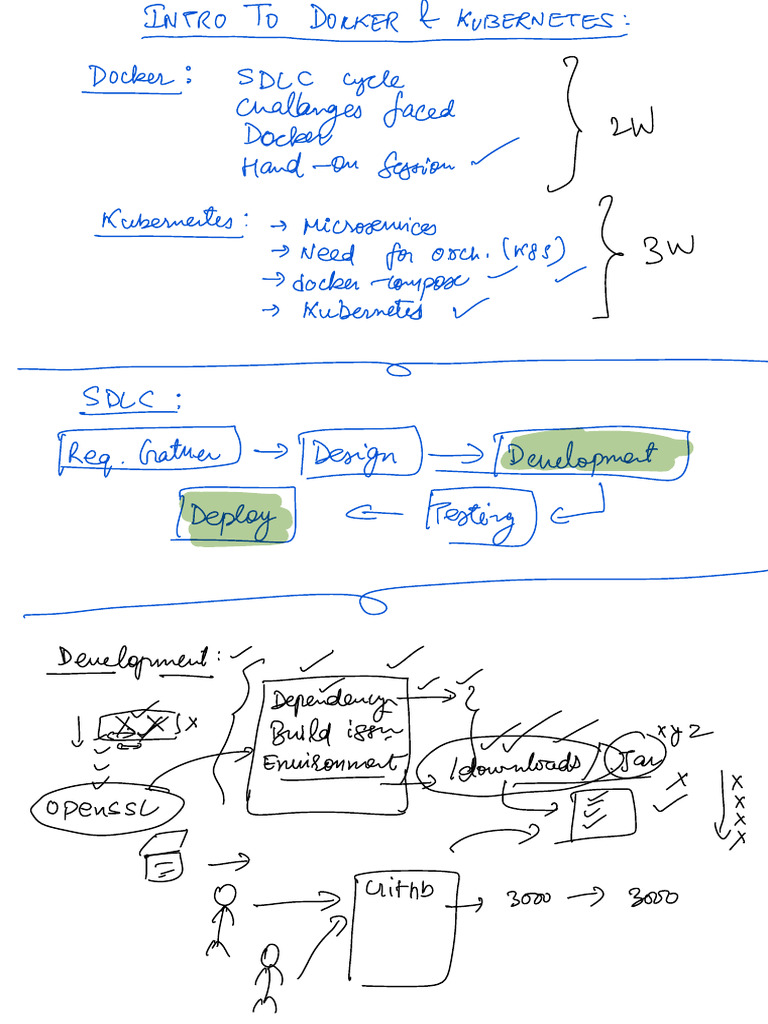 INTRO TO DOCKER & KUBERNETES:
Docker: SDLC cycle
Challanges faced
Docker
Hand-on Session ✓
2W
Kubernertes: → Microservices
→ Need for orch. (K8s)
→ docker-compose ✓ ✓
→ Kubernetes ✓
3W
SDLC:
Req. Gather → Design → Development
Deploy ← Testing ←
Development: ✓
Dependency
Build issue
Environment
x x x
openssl
/downloads/Jar
xyz
x
x
x
x
x
Github → 3000 → 3000